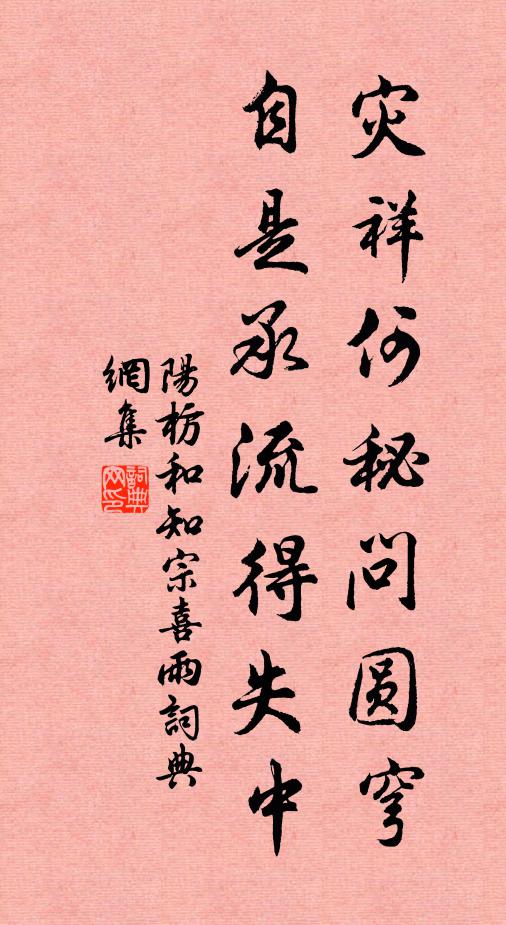 灾祥何秘问圆穹
自是承流得失中
陽枋和知宗喜雨詞典
網集
詞典網印